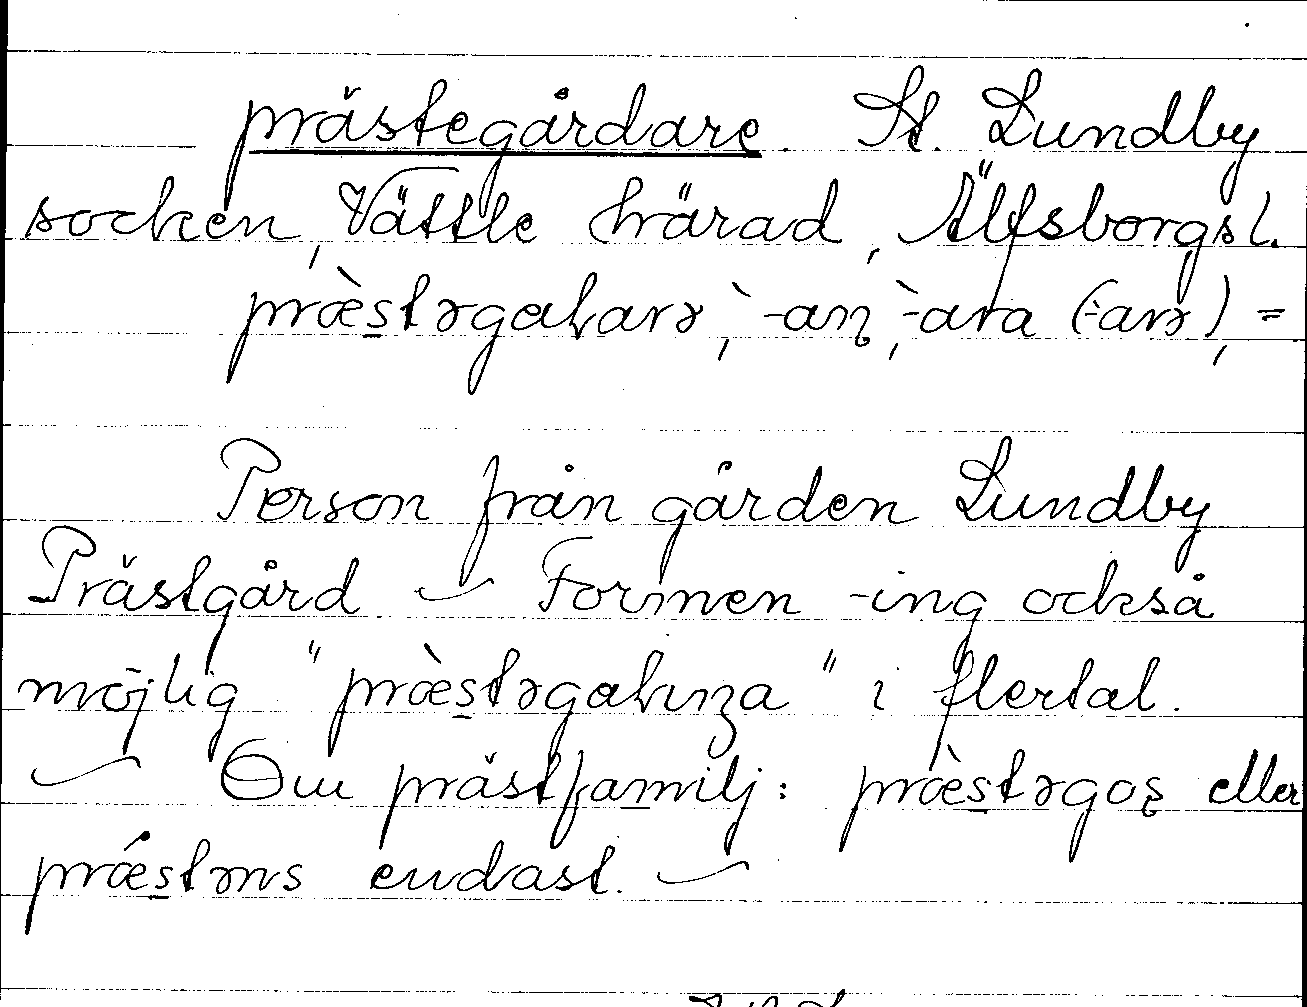 prästegårdare. St. Lundby
socken, Vättle härad, Älfsborgsl.
præ̀stəgaƚarə, -aɳ, -ara (-arə), =
Person från gården Lundby
Prästgård – Formen -ing också
möjlig "præ̀stəgaƚɩŋa" i flertal.
– Om prästfamilj: præ̀stəgoʂ eller
prǽstəns endast. –